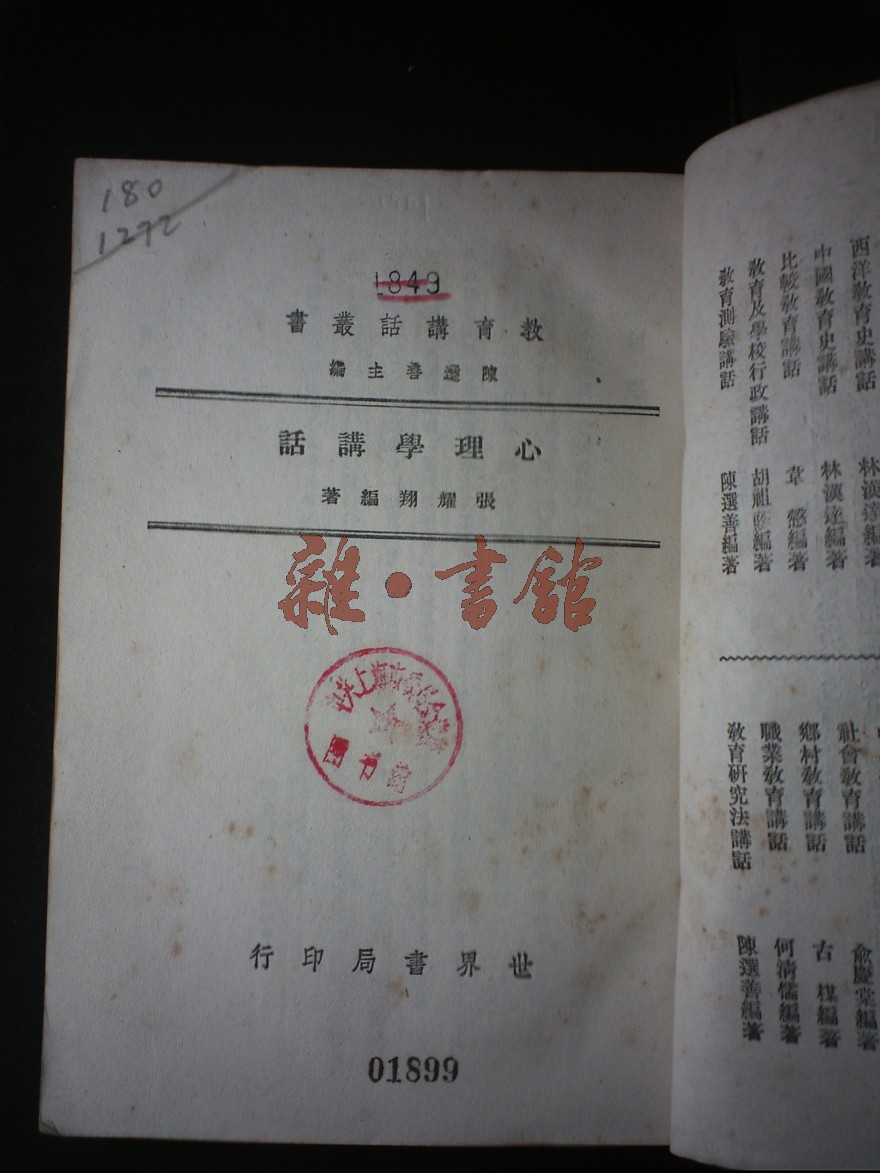 180
1272
1849
教育講話叢書
陳選善主編
心理學講話
張耀翔編著
雜·書館
圖書館
世界書局印行
01899
西洋教育史講話 林漢達編著
中國教育史講話 林漢達編著
比較教育講話 韋愨編著
教育及學校行政講話 胡祖蔭編著
教育測驗講話 陳選善編著
社會教育講話 俞慶棠編著
鄉村教育講話 古楳編著
職業教育講話 何清儒編著
教育研究法講話 陳選善編著